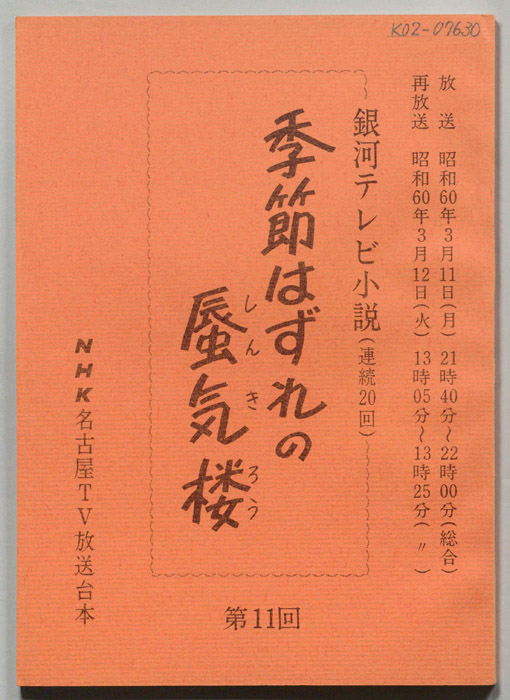 K02-07630
放送 昭和60年3月11日(月) 21時40分〜22時00分(総合)
再放送 昭和60年3月12日(火) 13時05分〜13時25分(〃)
銀河テレビ小説(連続20回)
季節はずれの
蜃気楼
しんきろう
第11回
NHK名古屋TV放送台本